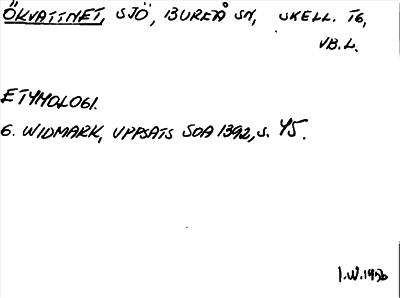 ÖKVATTNET, SJÖ, BUREÅ SN, SKELL. TG,
VB.L.
ETYMOLOGI.
G. WIDMARK, UPPSATS SOA 1392, S. 45.
I.W. 1956